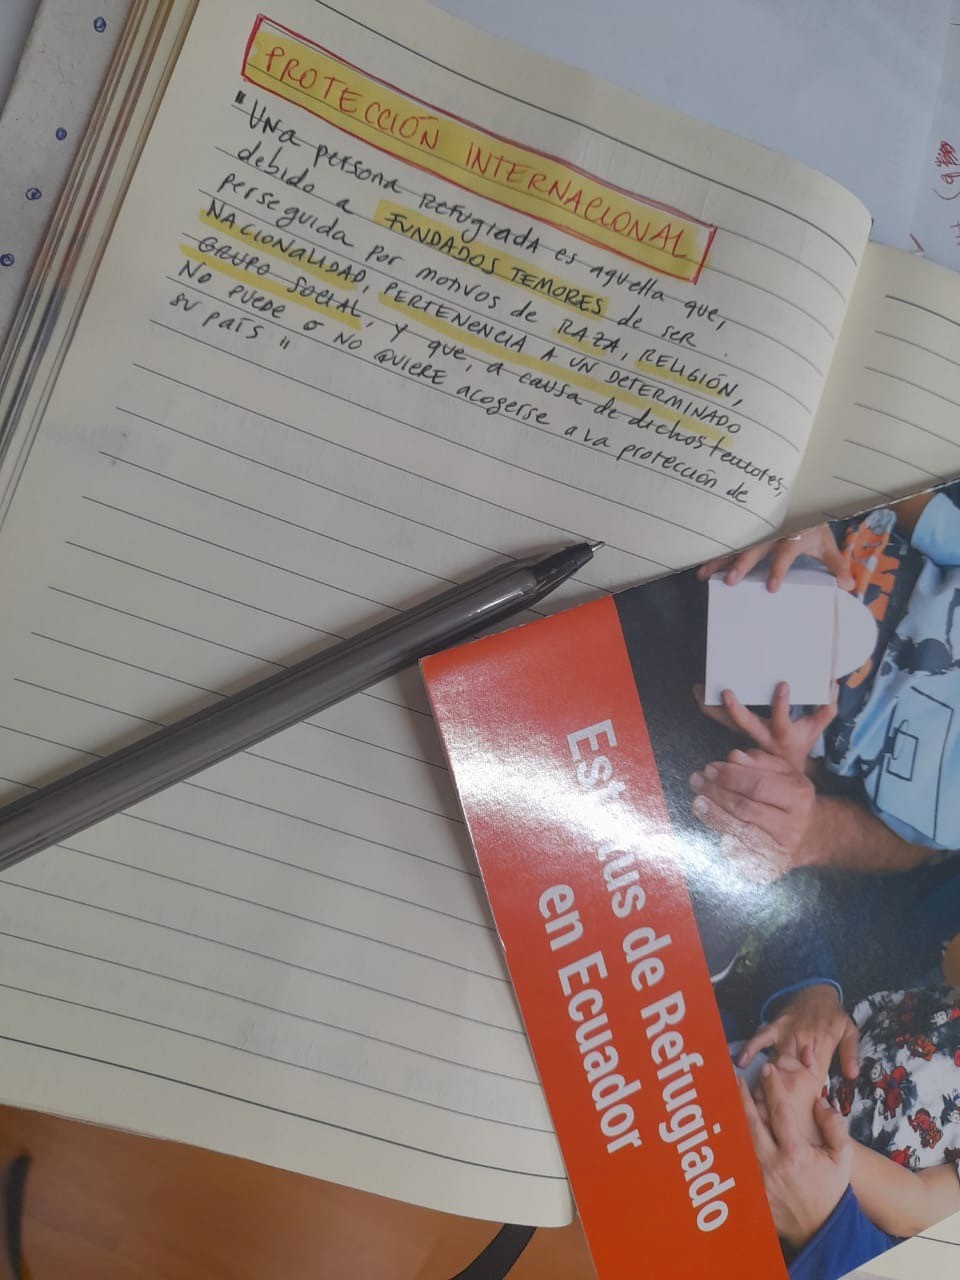 PROTECCIÓN INTERNACIONAL
"Una persona refugiada es aquella que,
debido a FUNDADOS TEMORES de ser
perseguida por motivos de RAZA, RELIGIÓN,
NACIONALIDAD, PERTENENCIA A UN DETERMINADO
GRUPO SOCIAL, y que, a causa de dichos temores,
NO PUEDE o NO QUIERE acogerse a la protección de
su país"
Estatus de Refugiado
en Ecuador